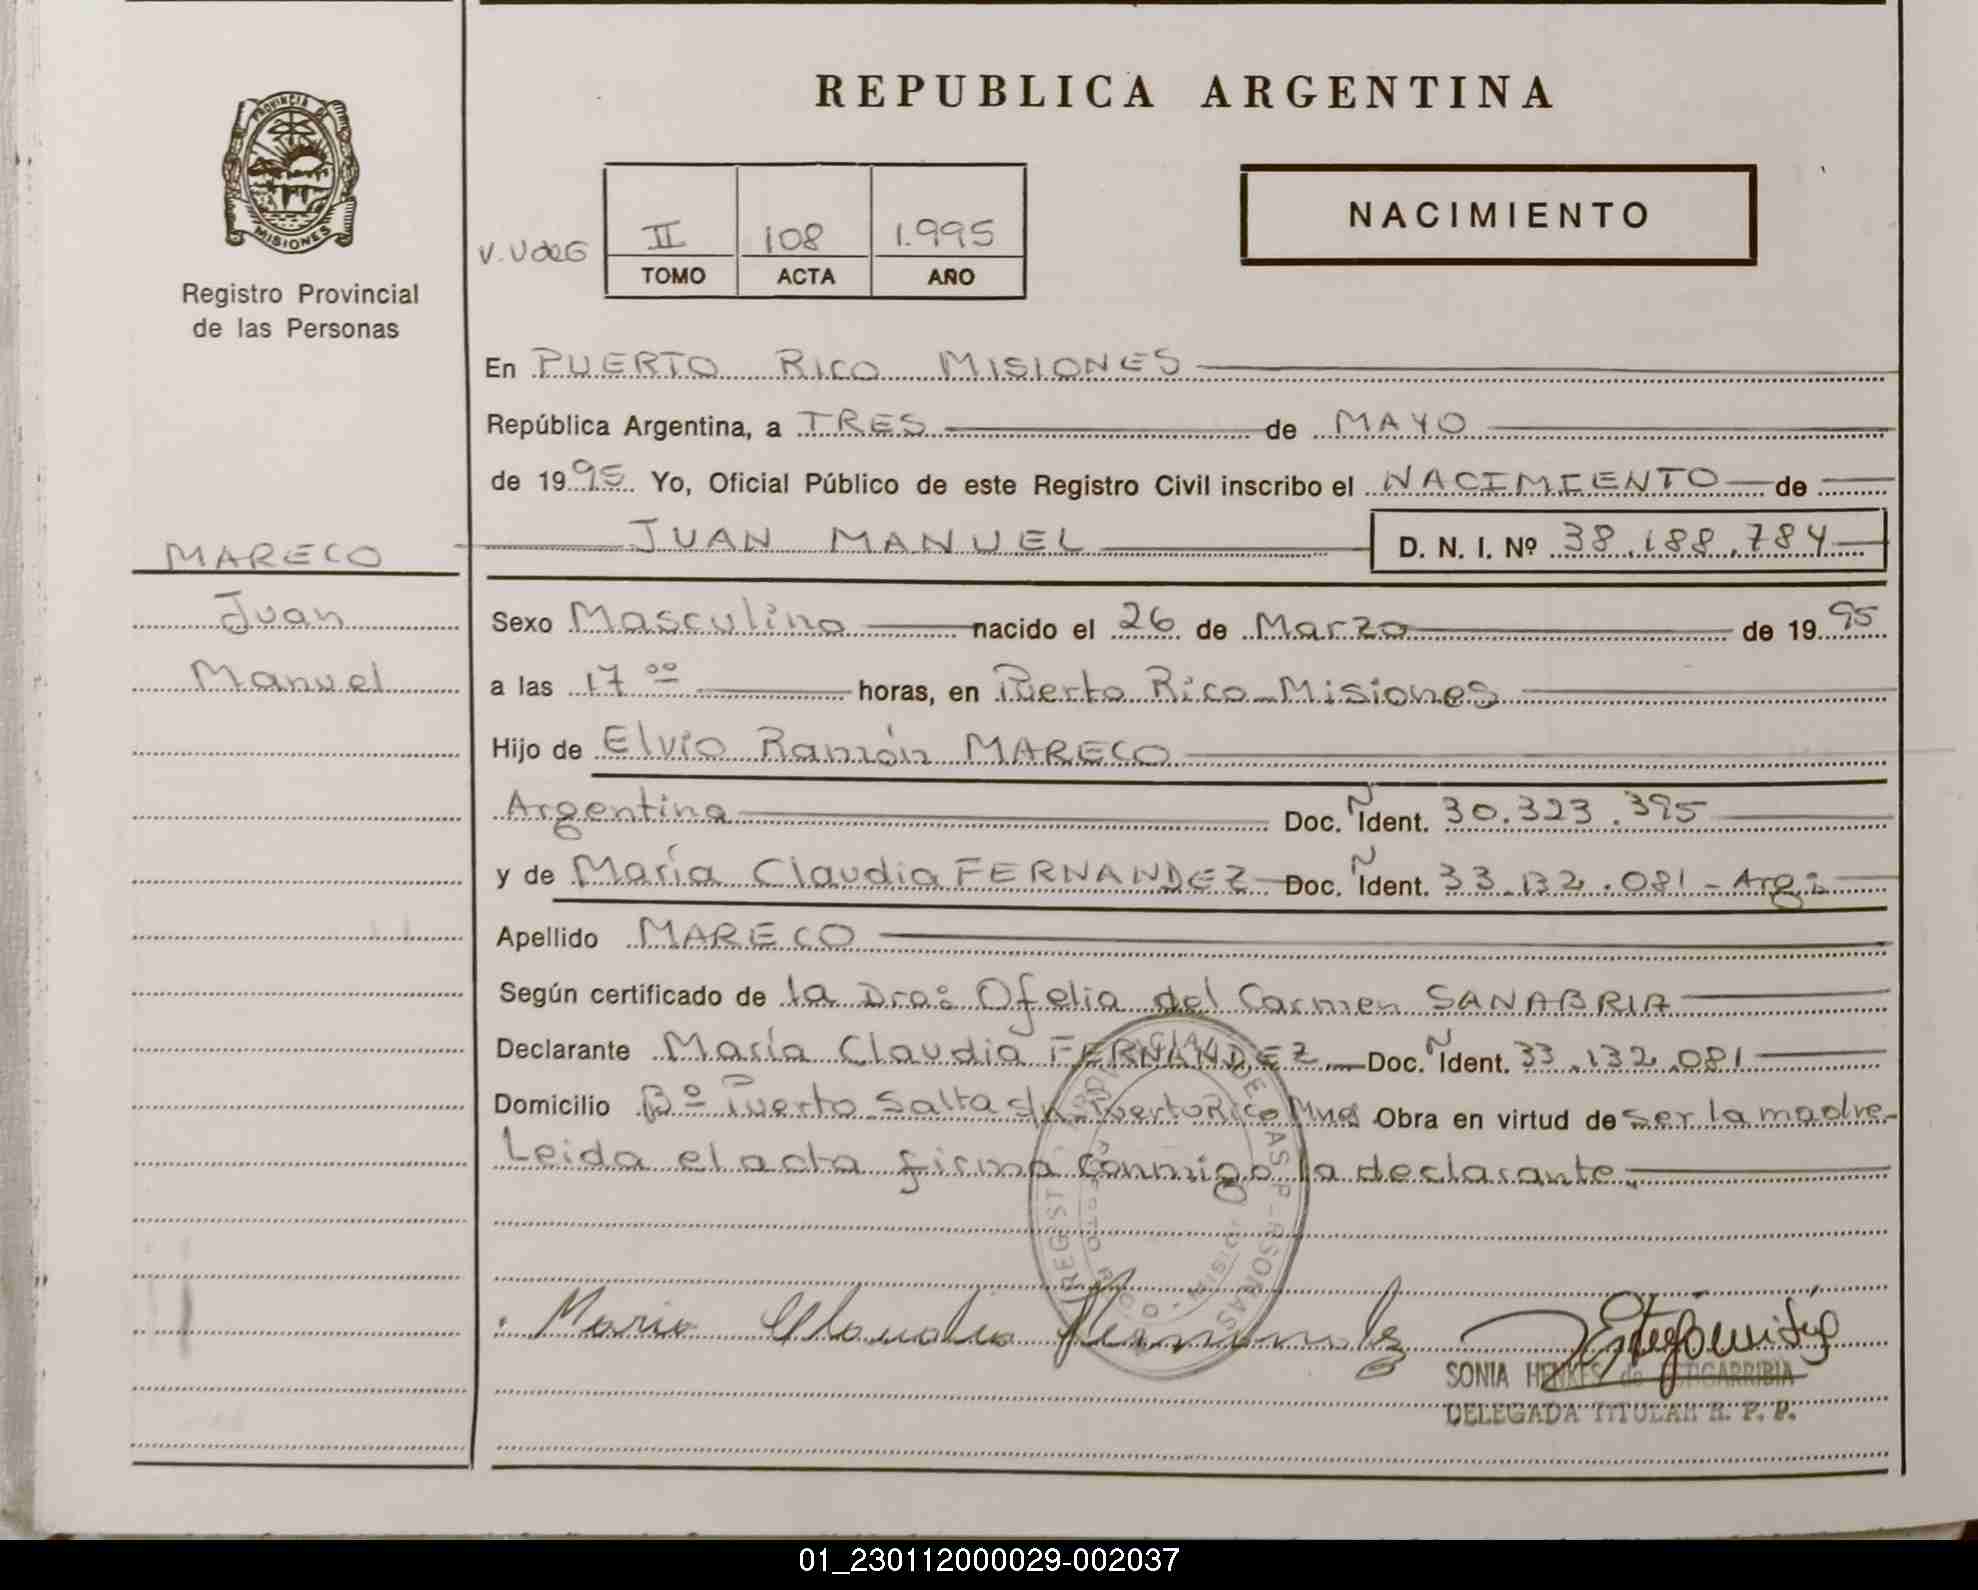 REPUBLICA ARGENTINA
PROVINCIA D
MISIONES
Registro Provincial
de las Personas
NACIMIENTO
II 108 1.995
TOMO ACTA AÑO
En PUERTO RICO MISIONES
República Argentina, a TRES de MAYO
de 1995 Yo, Oficial Público de este Registro Civil inscribo el NACIMIENTO de
JUAN MANUEL D. N. I. Nº 38.188.784
MARECO
Juan
Manuel
Sexo Masculino nacido el 26 de Marzo de 1995
a las 17 00 horas, en Puerto Rico - Misiones
Hijo de Elvio Ramón MARECO
Argentina Doc. Ident. 30.323.395
y de María Claudia FERNANDEZ Doc. Ident. 33.132.081 - Arg.
Apellido MARECO
Según certificado de la Dra: Ofelia del Carmen SANABRIA
Declarante María Claudia FERNANDEZ Doc. Ident. 33.132.081
Domicilio Bº Puerto Salta s/n Puerto Rico Mnes Obra en virtud de ser la madre
Leida el acta firma conmigo la declarante.
Maria Claudia Fernandez
SONIA HENKES de ESTIGARRIBIA
DELEGADA TITULAR R. P. P.
01_230112000029-002037